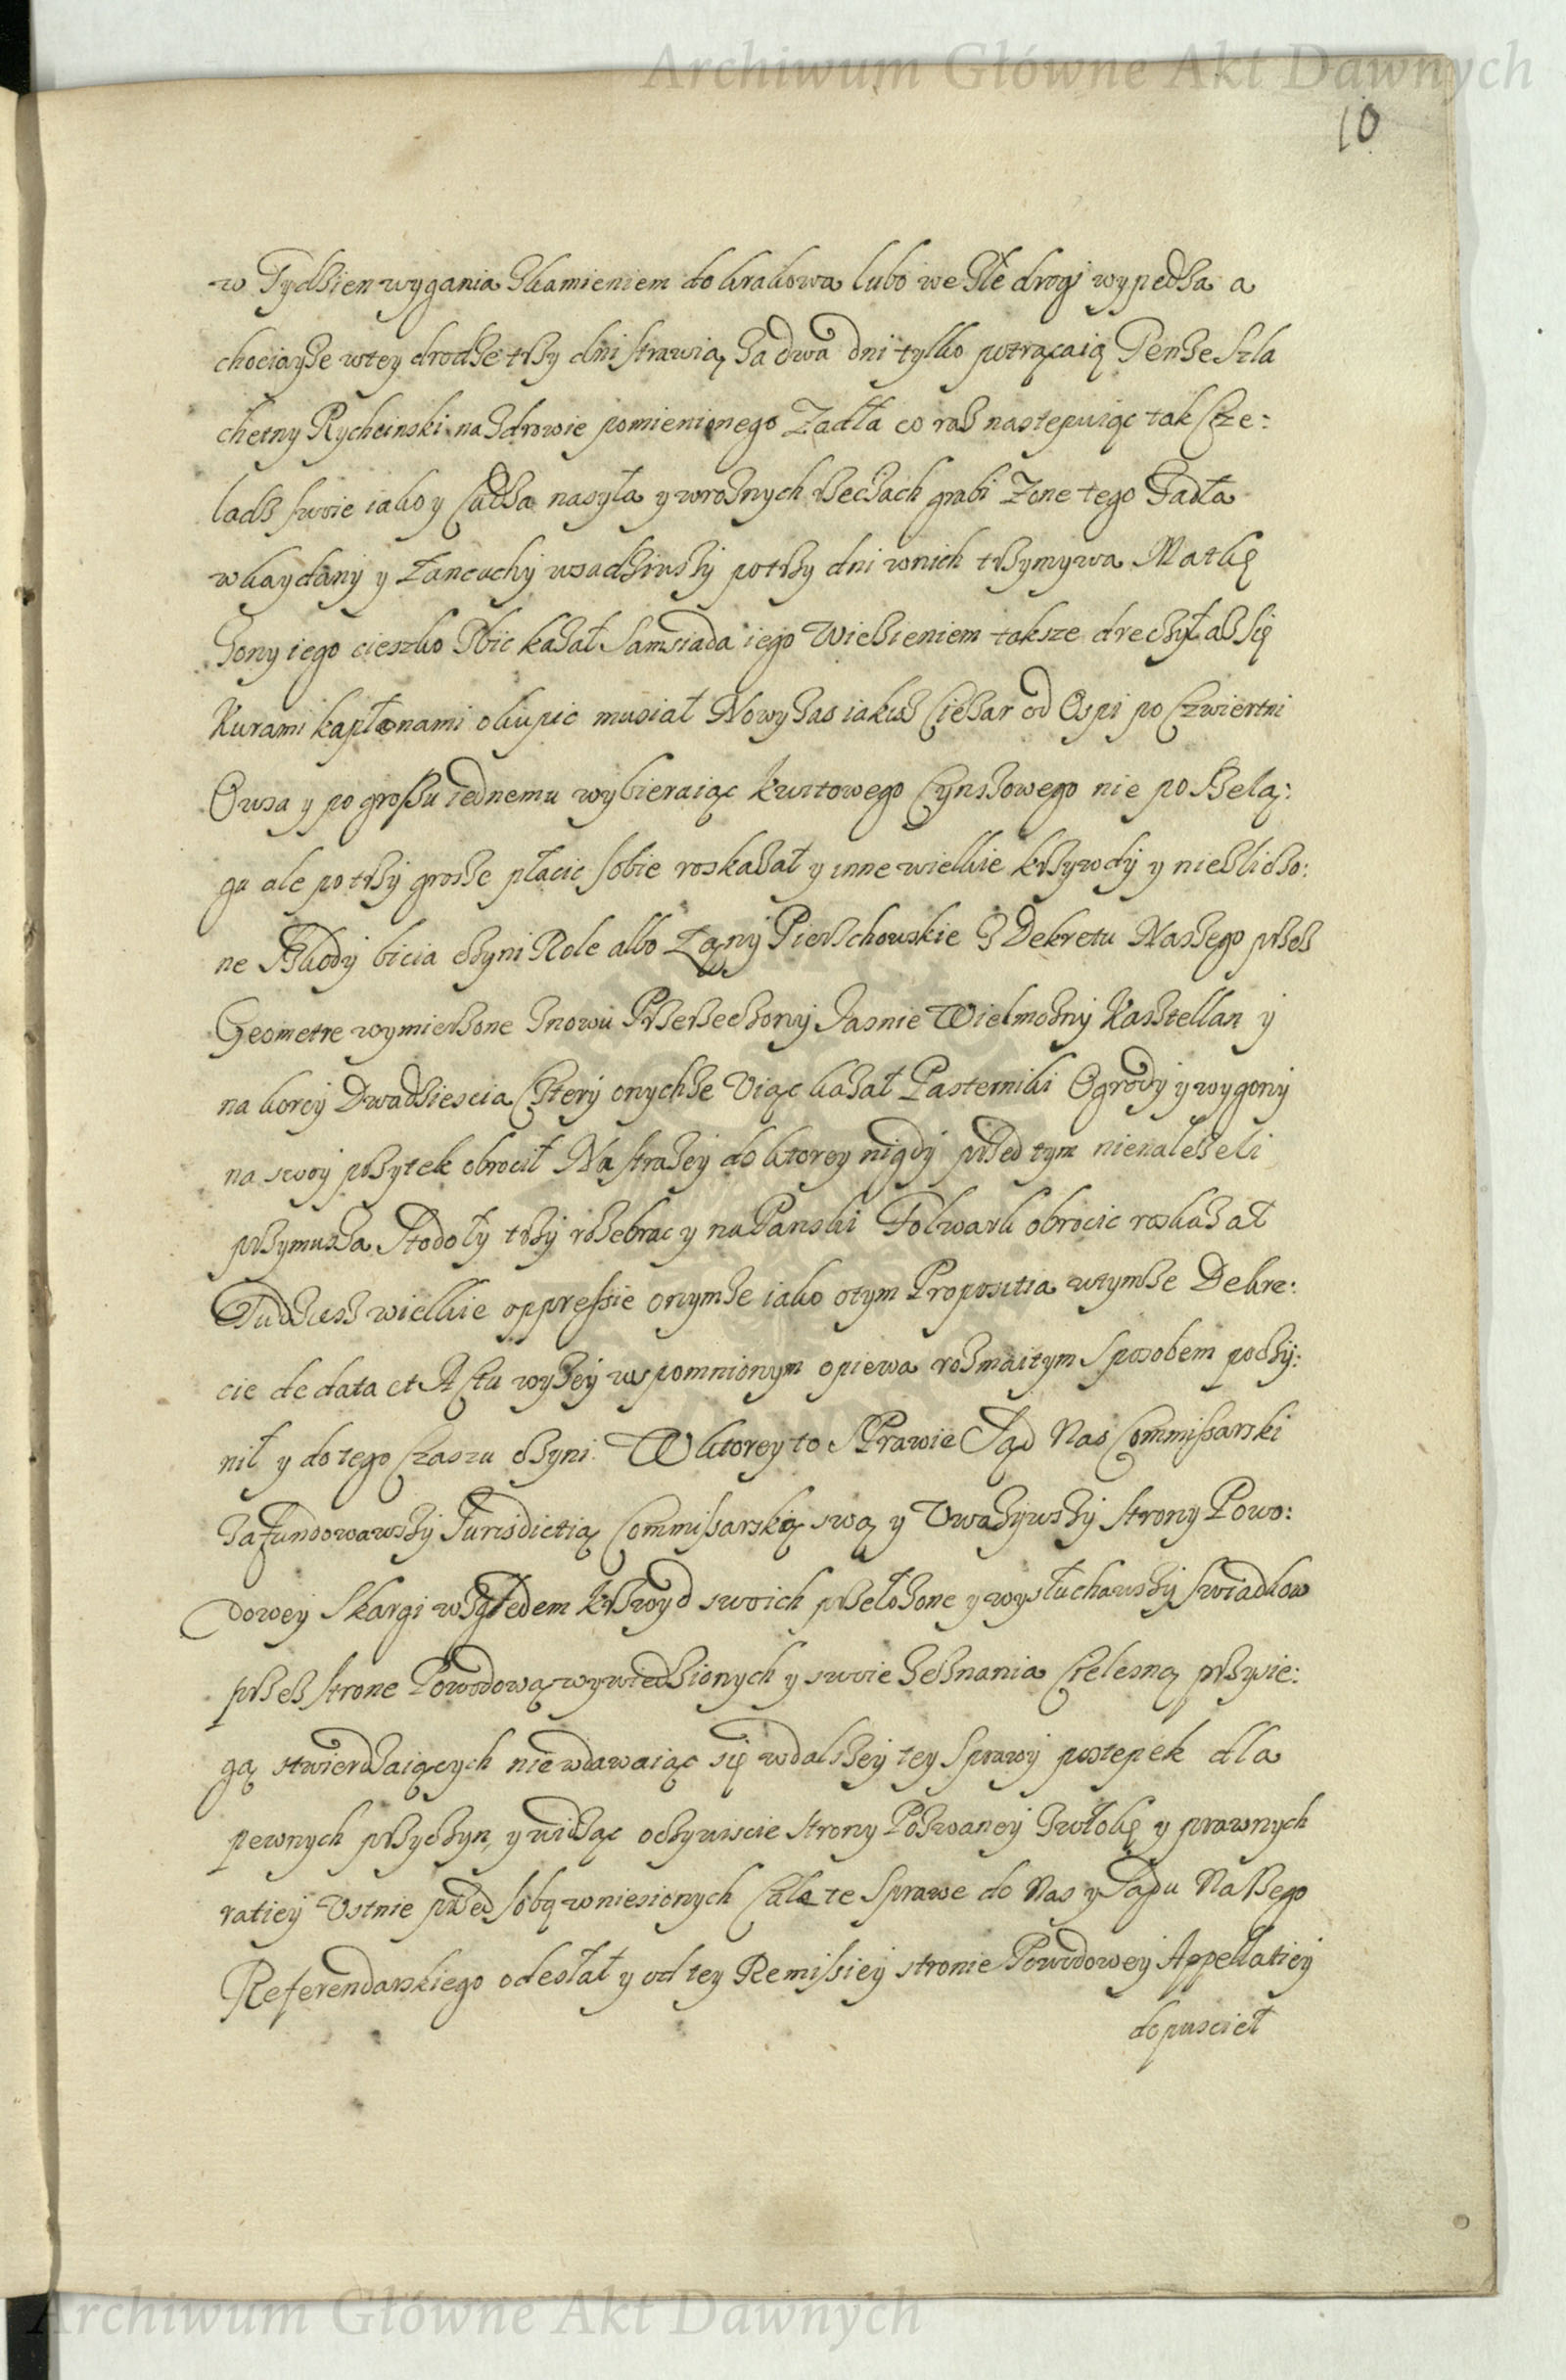 Archiwum Główne Akt Dawnych
10
w Tydzien wygania zkamieniem do krakowa lubo we złe drogi wypedza a
chociayze wtey drodze trzy dni strawią za dwa dni tylko potrącaią Tenze Szla
chetny Rychcinski na zdrowie pomienionego Zadła co raz nastepuiąc tak Cze:
ladz swoie iako y Cudza nasyła y wroznych rzeczach grabi Zone tego Zadła
wkaydany y Łancuchy wsadziwszy potrzy dni wnich trzymywa Matkę
Zony iego cieszko zbic kazał Samsiada iego Wiezieniem taksze dreczył asz się
Kurami kapłonami okupic musiał Nowy zas iakisz Ciezar od Ospi po Czwiertni
Owsa y po groszu iednemu wybieraiąc kwitowego Czynszowego nie po Szelą:
gu ale po trzy grosze płacic sobie roskazał y inne wielkie krzywdy y niezliczo:
ne Szkody bicia czyni Role albo Łąny Pierzchowskie z Dekretu Naszego przez
Geometre wymierzone znowu Przerzeczony Jasnie Wielmozny Kasztellan y
na korcy Dwadziescia Cztery onychze Uiąc kazał Pasterniki Ogrody y wygony
na swoy pozytek obrocił Na strazey do ktorey nigdy przed tym nienalezeli
przymusza Stodoły trzy rozebrac y na Panski Folwark obrocic roskazał
Tudziesz wielkie oppressie onymze iako otym Propositia wtymze Dekre:
cie de data et Actu wyzey wspomnionym opiewa rozmaitym Sposobem poczy:
nił y do tego Czaszu czyni. W ktorey to Sprawie Sąd Nas Commissarski
Zafundowawszy Jurisdictią Commissarską swą y Uwazywszy strony Powo:
dowey Skargi wzgledem krzywd swoich przełozone y wysłuchawszy swiadkow
przez strone Powodową wywiedzionych y swoie zeznania Cielesną przysie:
gą stwierdzaiących niewdawaiąc się wdalszey tey Sprawy postepek dla
pewnych przyczyn, y widząc oczywiscie strony Pozwaney zwłokę y prawnych
ratiey Ustnie przed sobą wniesionych Całą te Sprawe do Nas y Sądu Naszego
Referendarskiego odesłał y od tey Remissiey stronie Powodowey Appellatiey
dopuscieł
Archiwum Główne Akt Dawnych